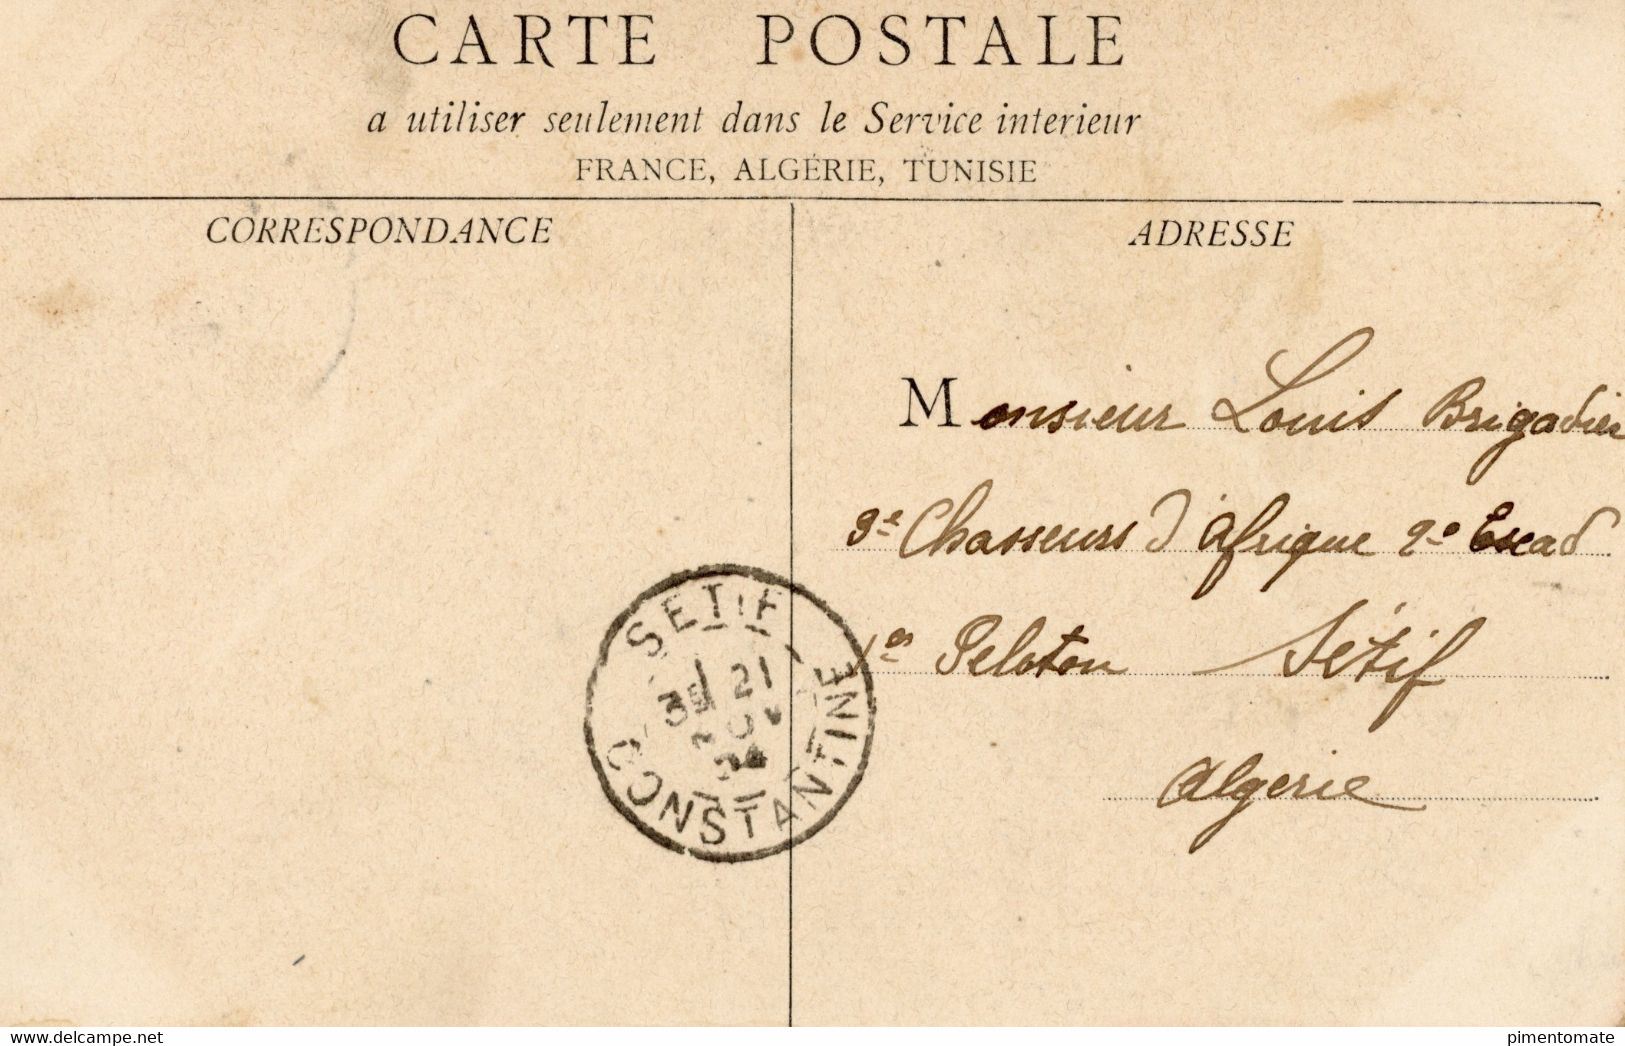 CARTE POSTALE
a utiliser seulement dans le Service interieur
FRANCE, ALGÉRIE, TUNISIE
CORRESPONDANCE
ADRESSE
Monsieur Louis Brigadier
3e Chasseurs d'Afrique 2e Escad
1er Peloton Sétif
Algerie
SETIF
21
CONSTANTINE
www.delcampe.net
pimentomate